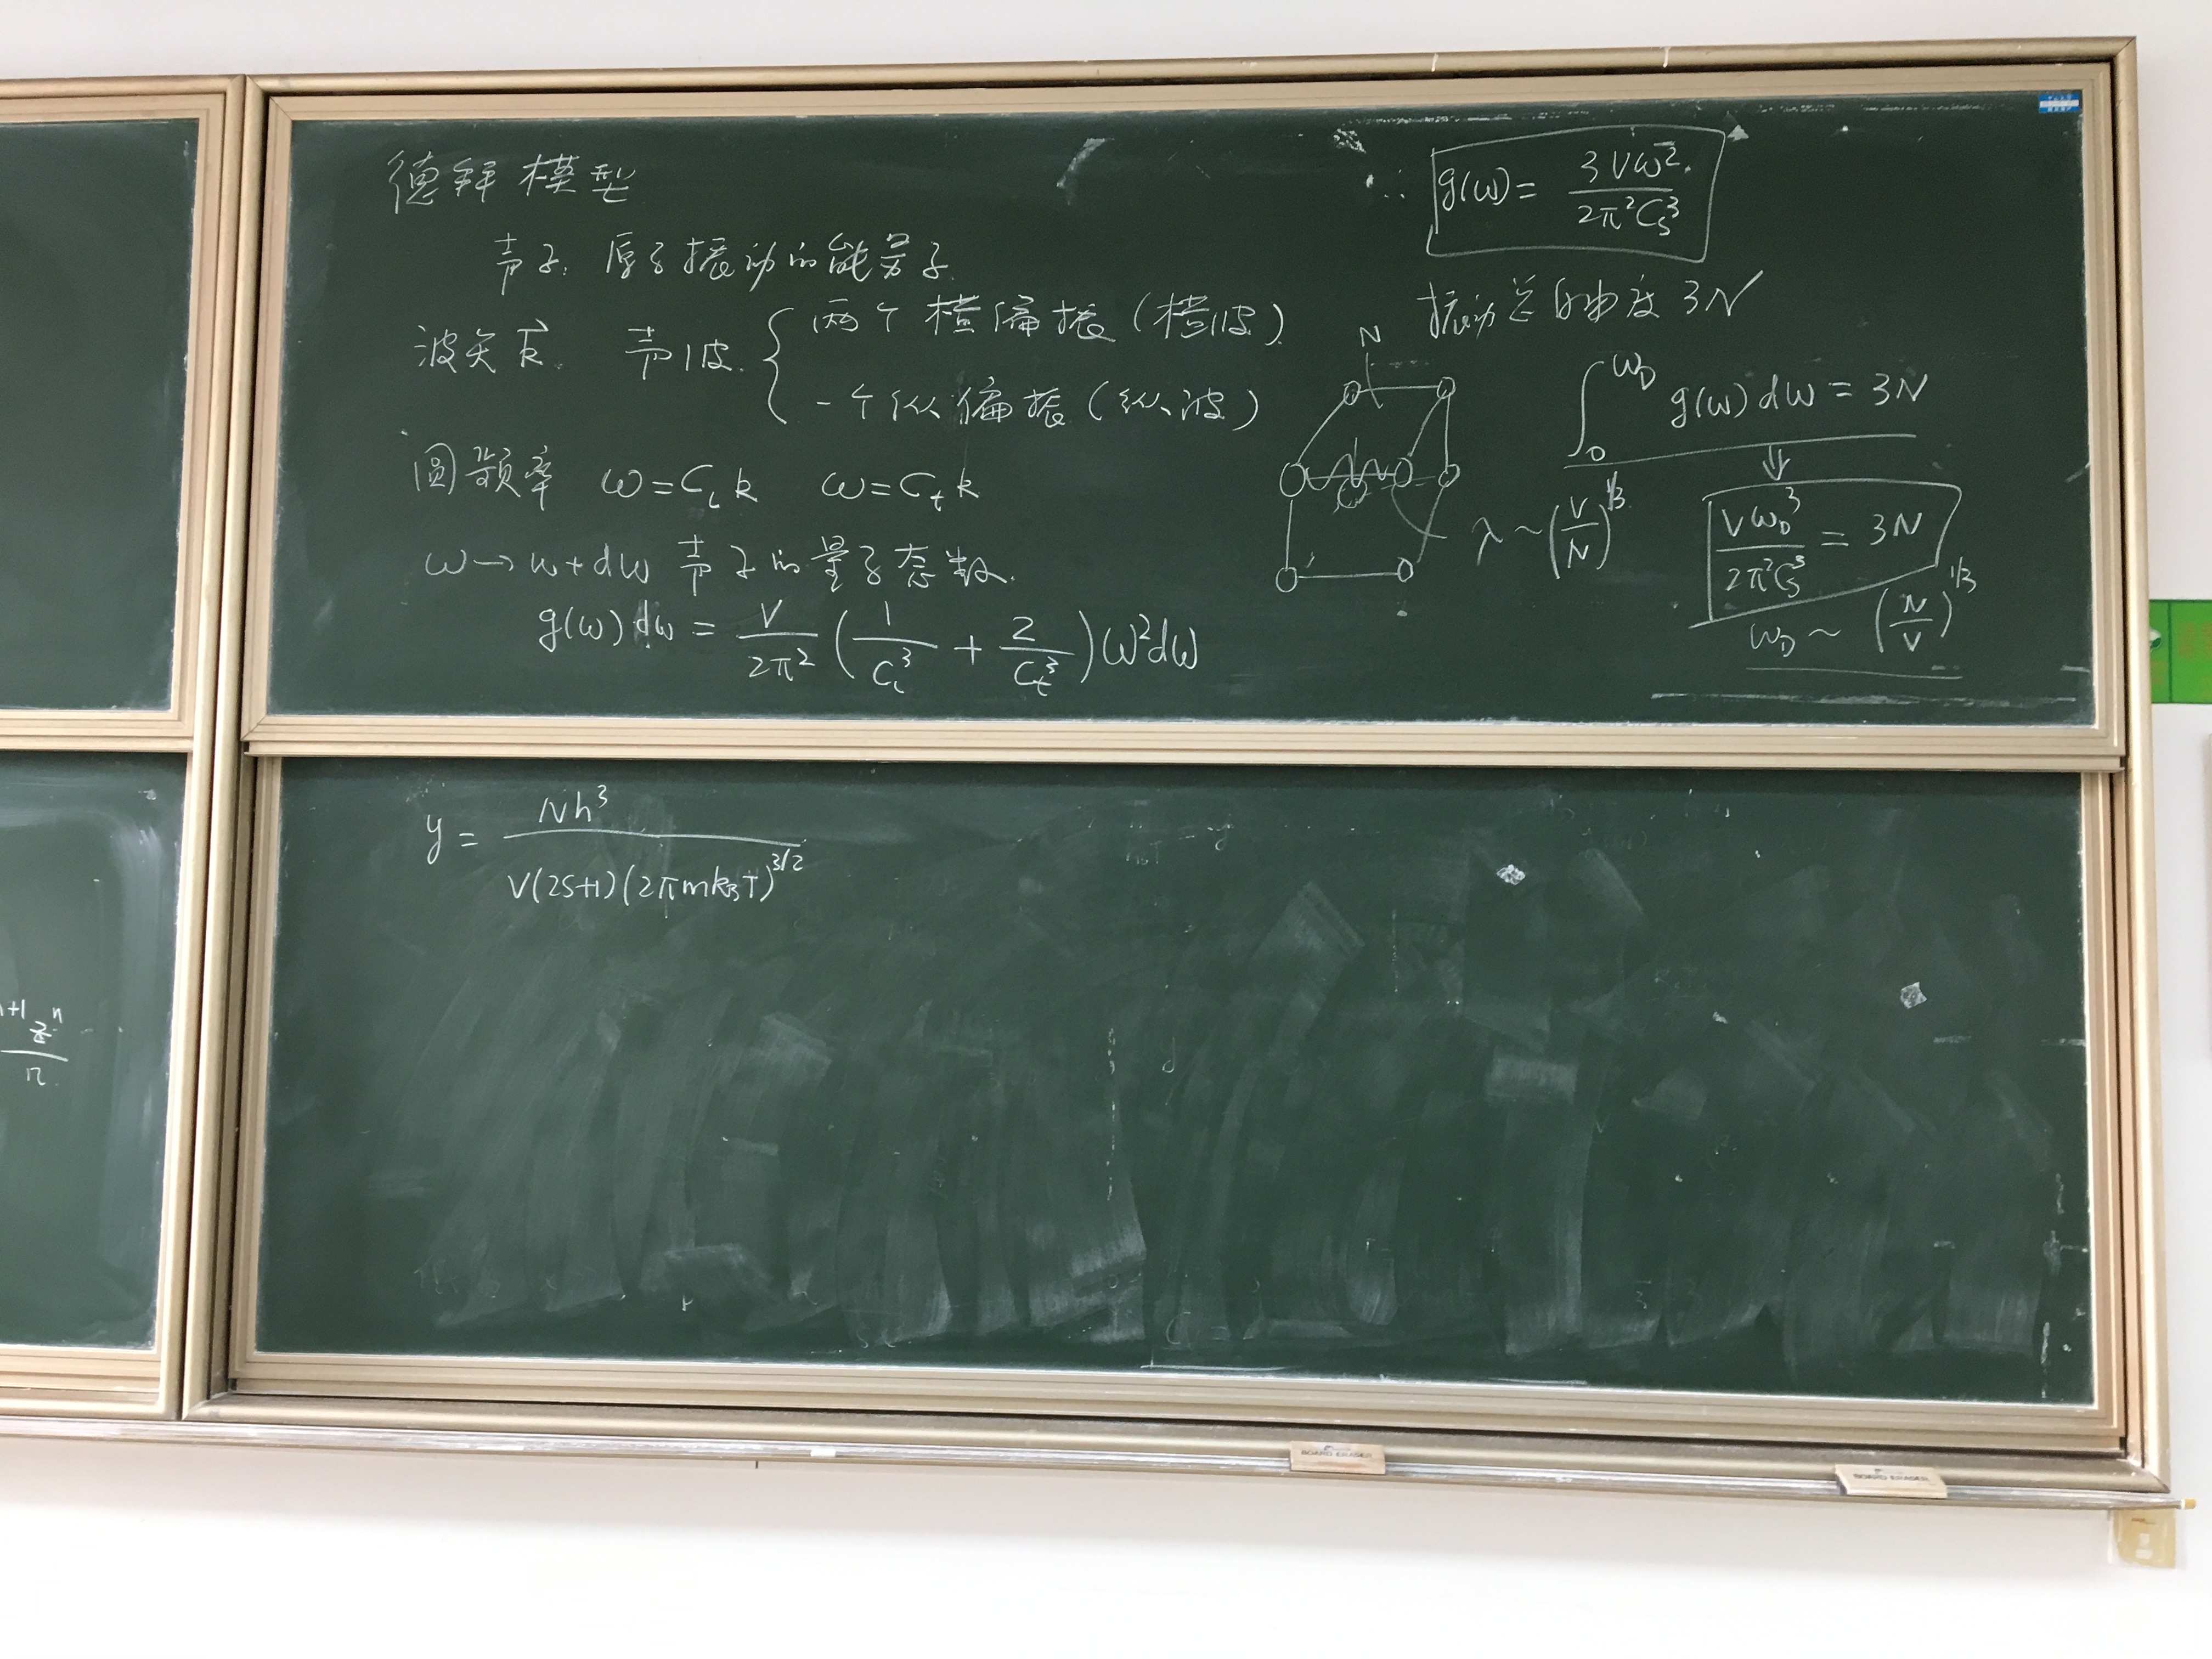 德拜模型
声子: 原子振动的能量子
波矢 k⃗. 声波. { 两个横偏振 (横波)
一个纵偏振 (纵波)
圆频率 ω = C_l k ω = C_t k
ω → ω + dω 声子的量子态数.
g(ω) dω = V/2π² (1/C_l³ + 2/C_t³) ω² dω
∴ g(ω) = 3Vω²/2π²C_s³
振动总自由度 3N
∫₀^ω_D g(ω) dω = 3N
⇓
Vω_D³/2π²C_s³ = 3N
ω_D ~ (N/V)^1/3
N
λ ~ (V/N)^1/3
y = Nh³/V(2S+1)(2πmk_BT)^3/2
n+1 z^n
n
BOARD ERASER
BOARD ERASER